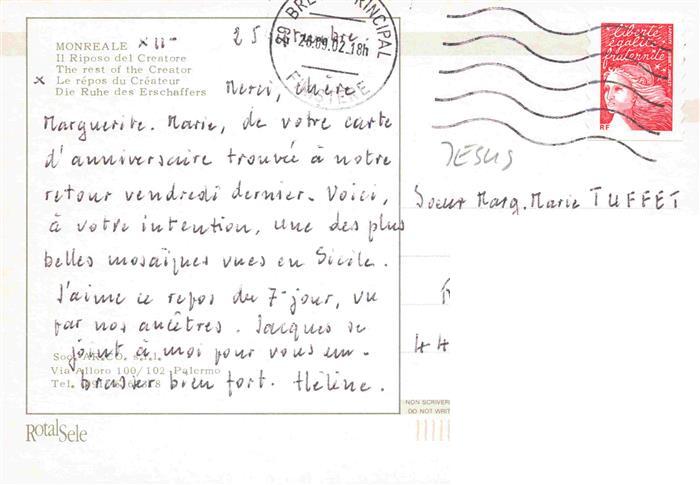 MONREALE x IIe
Il Riposo del Creatore
The rest of the Creator
x Le répos du Créateur
Die Ruhe des Erschaffers
25 septembre.
Merci, chère
Marguerite. Marie, de votre carte
d'anniversaire trouvée à notre
retour vendredi dernier. Voici,
à votre intention, une des plus
belles mosaïques vues en Sicile.
J'aime ce repos du 7e jour, vu
par nos ancêtres. Jacques se
joint à moi pour vous em-
brasser bien fort. Hélène.
Via Alloro 100/102 - Palermo
Tel.
RotalSele
PRINCIPAL
26.09.02 18h
FINISTERE
Liberté
égalité
fraternité
RF
JESUS
Soeur Marg. Marie TUFFET
44
NON SCRIVER
DO NOT WRIT